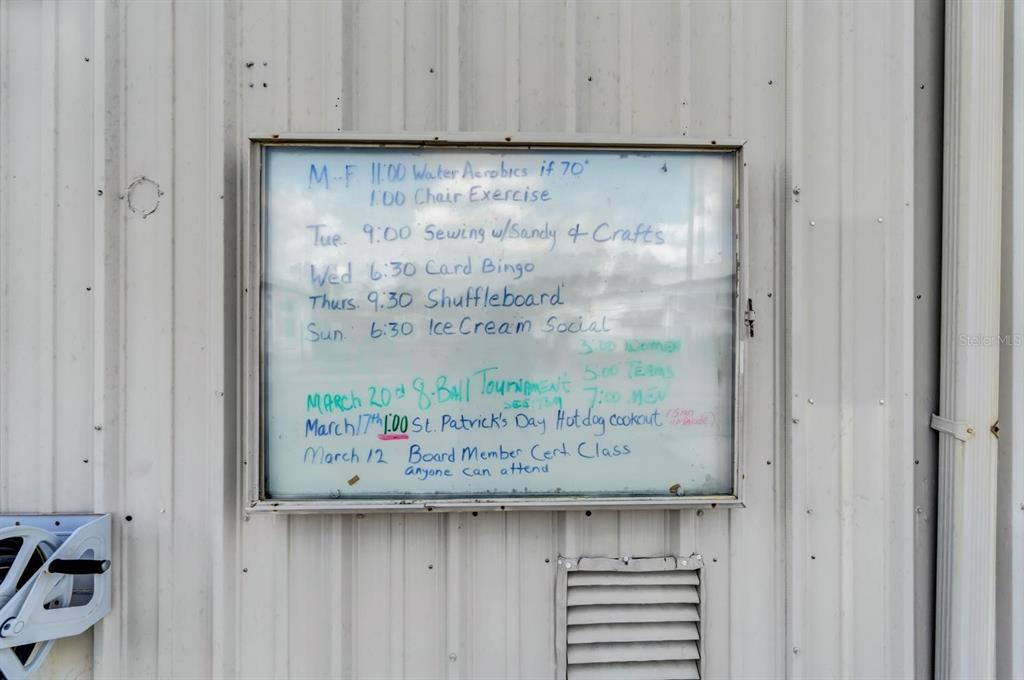 M-F 11:00 Water Aerobics if 70°
1:00 Chair Exercise
Tue. 9:00 Sewing w/Sandy & Crafts
Wed 6:30 Card Bingo
Thurs. 9:30 Shuffleboard
Sun. 6:30 Ice Cream Social
3:00 WOMEN
5:00 TEAMS
MARCH 20 8-BALL TOURNAMENT 7:00 MEN
March 17th 1:00 St. Patrick's Day Hotdog cookout (Sign
March 12 Board Member Cert. Class
anyone can attend
Stellar MLS